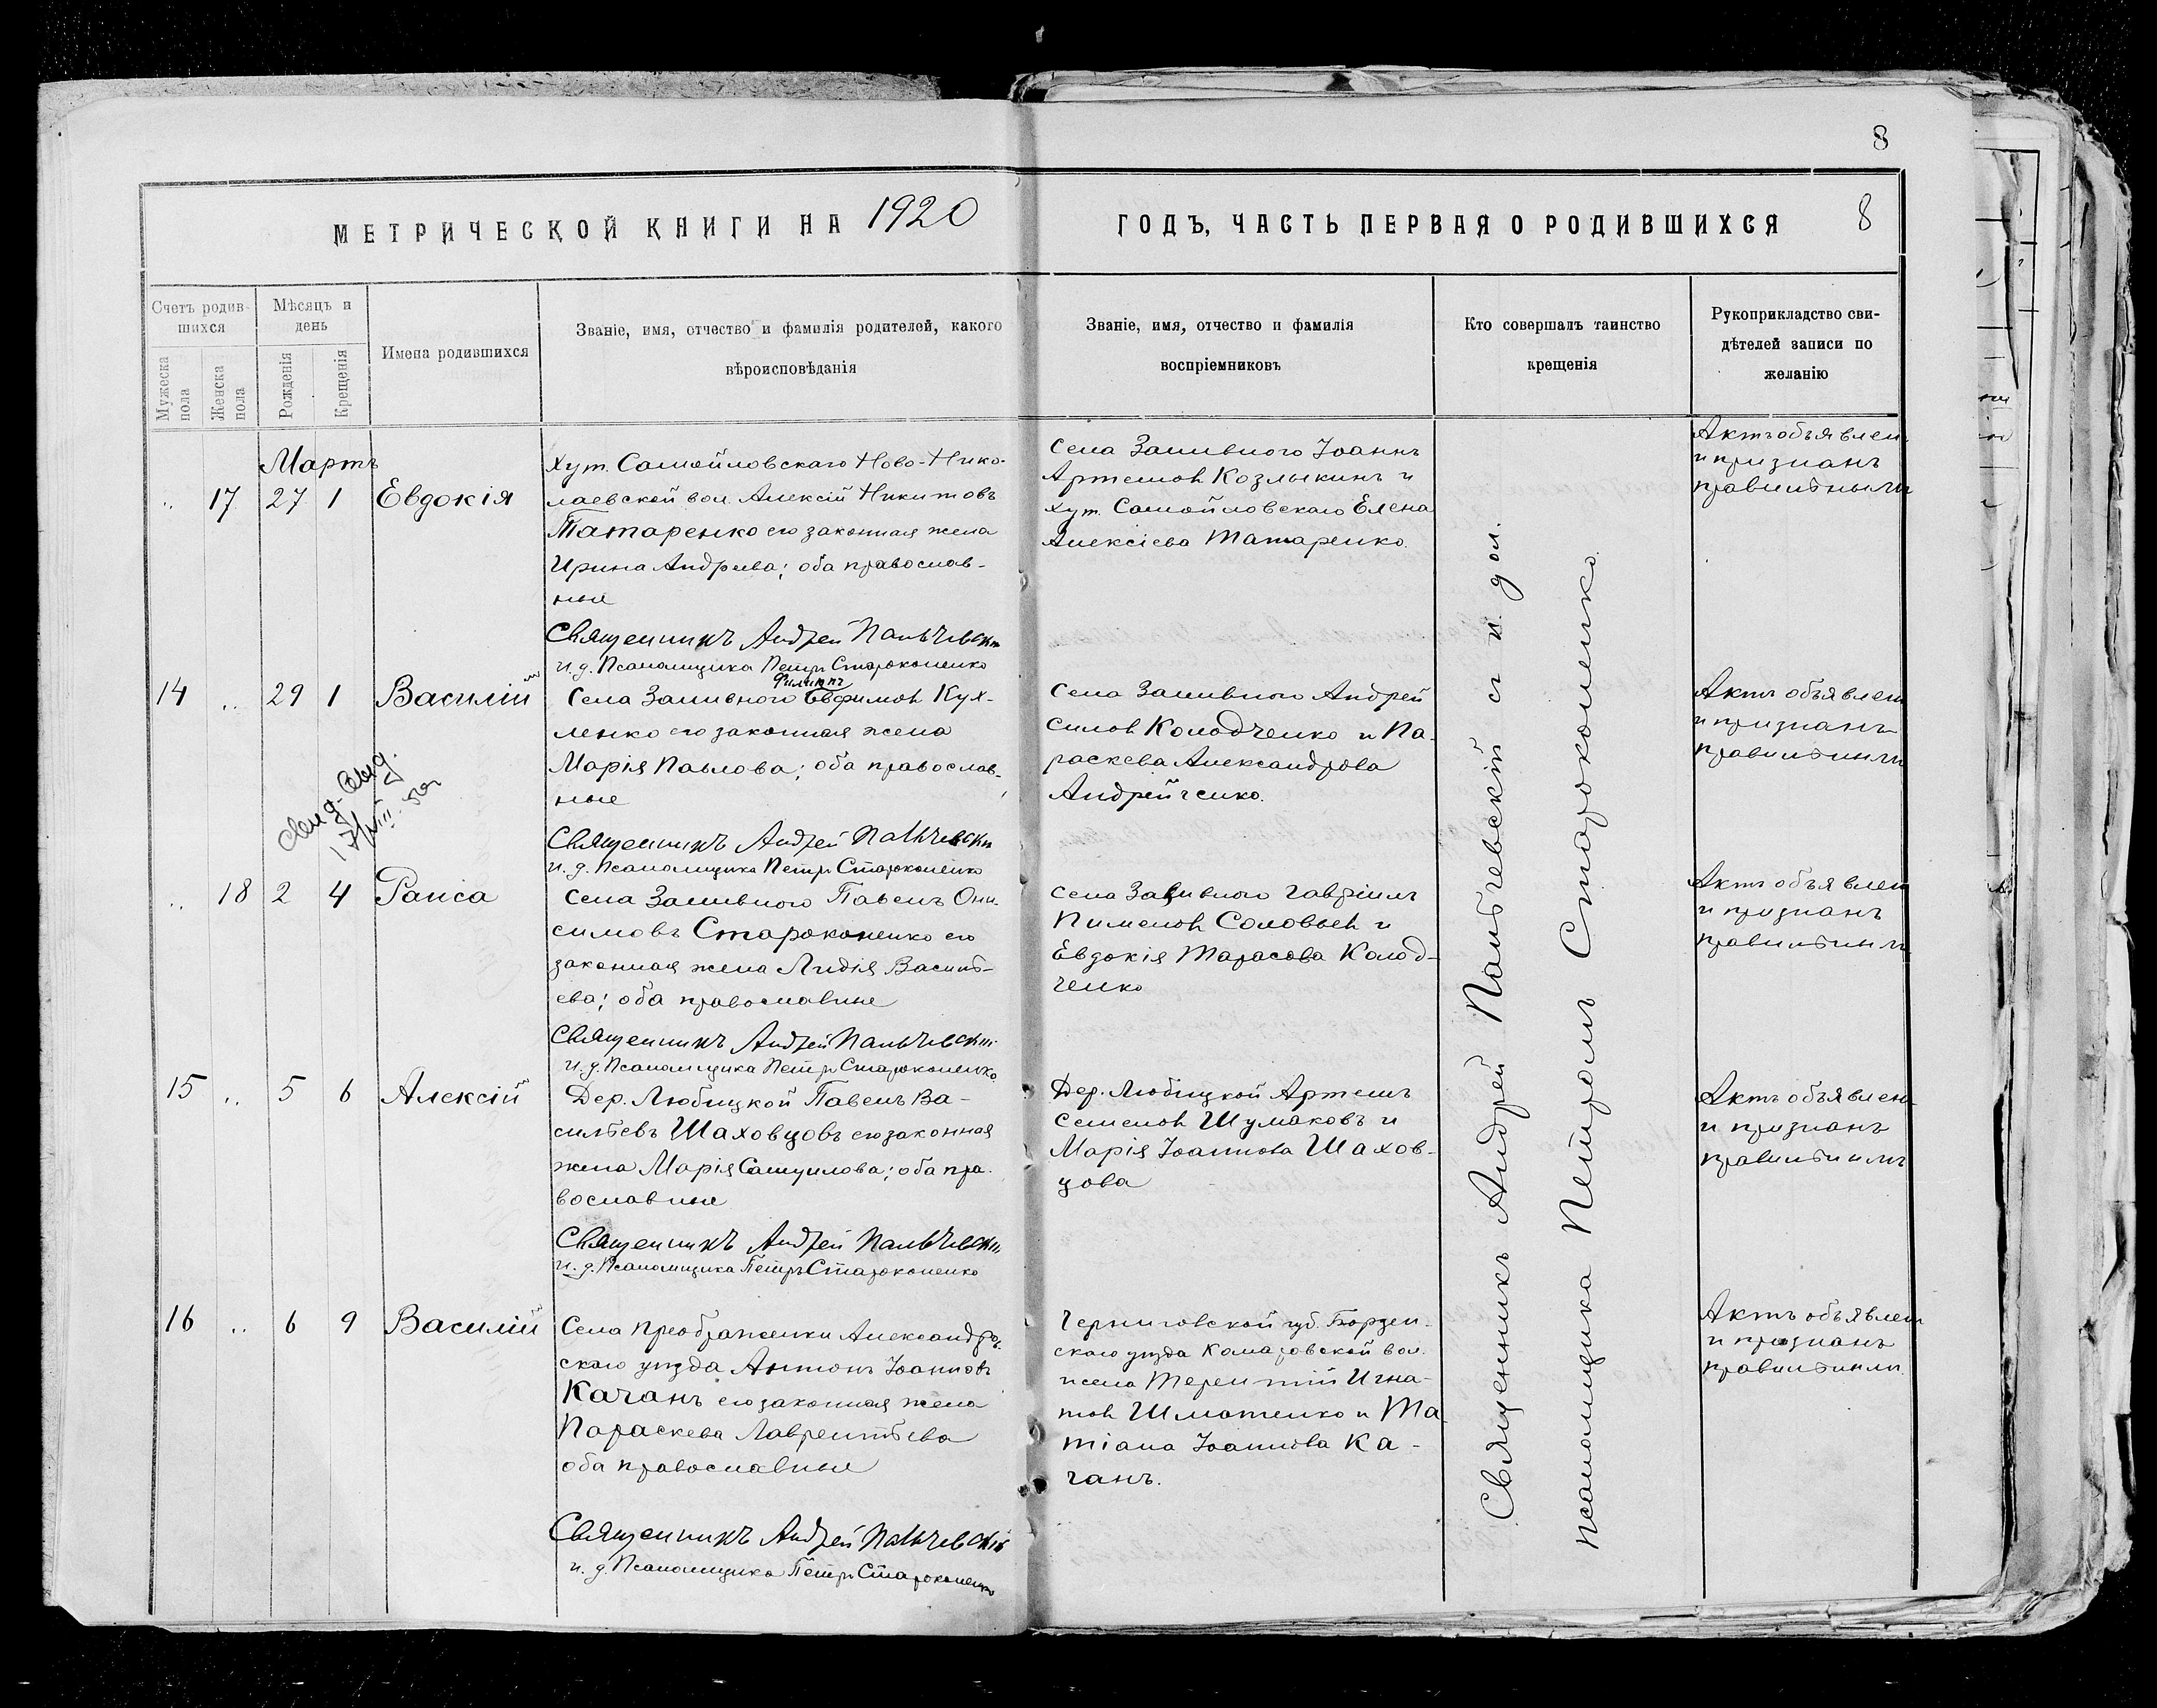 8
МЕТРИЧЕСКОЙ КНИГИ НА 1920
ГОДЪ, ЧАСТЬ ПЕРВАЯ О РОДИВШИХСЯ 8
Счетъ родив-
шихся
Мужеска
пола
Женска
пола
Мѣсяцъ и
день
Рожденія
Крещенія
Имена родившихся
Званіе, имя, отчество и фамилія родителей, какого
вѣроисповѣданія
Званіе, имя, отчество и фамилія
воспріемниковъ
Кто совершалъ таинство
крещенія
Рукоприкладство сви-
дѣтелей записи по
желанію
Мартъ
17 27 1 Евдокія
Хут. Самойловскаго Ново-Нико-
лаевской вол. Алексій Никитовъ
Татаренко его законная жена
Ирина Андреева; оба православ-
ные
Священникъ Андрей Пальчевскій
и. д. Псаломщика Петръ Староконенко
села Заливного Іоаннъ
Артемов Козлыкинъ и
хут. Самойловскаго Елена
Алексіева Татаренко.
Актъ объявлен
и признанъ
правильнымъ
14 29 1 Василій
Филиппъ
Села Заливного Евфимов Кух-
ленко его законная жена
Марія Павлова; оба православ-
ные
Священникъ Андрей Пальчевскій
и. д. Псаломщика Петръ Староконенко
села Заливного Андрей
Силов Колодченко и Па-
раскева Александрова
Андрейченко.
Актъ объявлен
и признанъ
правильнымъ
18 2 4 Раиса
Села Заливного Павелъ Они-
симовъ Староконенко его
законная жена Лидія Василь-
ева; оба православные
Священникъ Андрей Пальчевскій
и. д. Псаломщика Петръ Староконенко
села Заливного Гавріилъ
Пименов Соловьев и
Евдокія Тарасова Колод-
ченко
Актъ объявлен
и признанъ
правильнымъ
15 5 6 Алексій
Дер. Любицкой Павелъ Ва-
сильевъ Шаховцовъ его законная
жена Марія Самуилова; оба пра-
вославные
Священникъ Андрей Пальчевскій
и. д. Псаломщика Петръ Староконенко
Дер. Любицкой Артемъ
Семенов Шумаковъ и
Марія Іоаннова Шахов-
цова
Актъ объявлен
и признанъ
правильнымъ
16 6 9 Василій
Села Преображенки Александров-
скаго уѣзда Антонъ Іоаннов
Качанъ его законная жена
Параскева Лаврентьева
оба православные
Священникъ Андрей Пальчевскій
и. д. Псаломщика Петръ Староконенко
Черниговской губ. Борзен-
скаго уѣзда Комаровской вол.
и села Терентій Игна-
тов Шматенко и Та-
тіана Іоаннова Ка-
чанъ.
Актъ объявлен
и признанъ
правильнымъ
Священникъ Андрей Пальчевскій с и. дол.
псаломщика Петромъ Староконенко